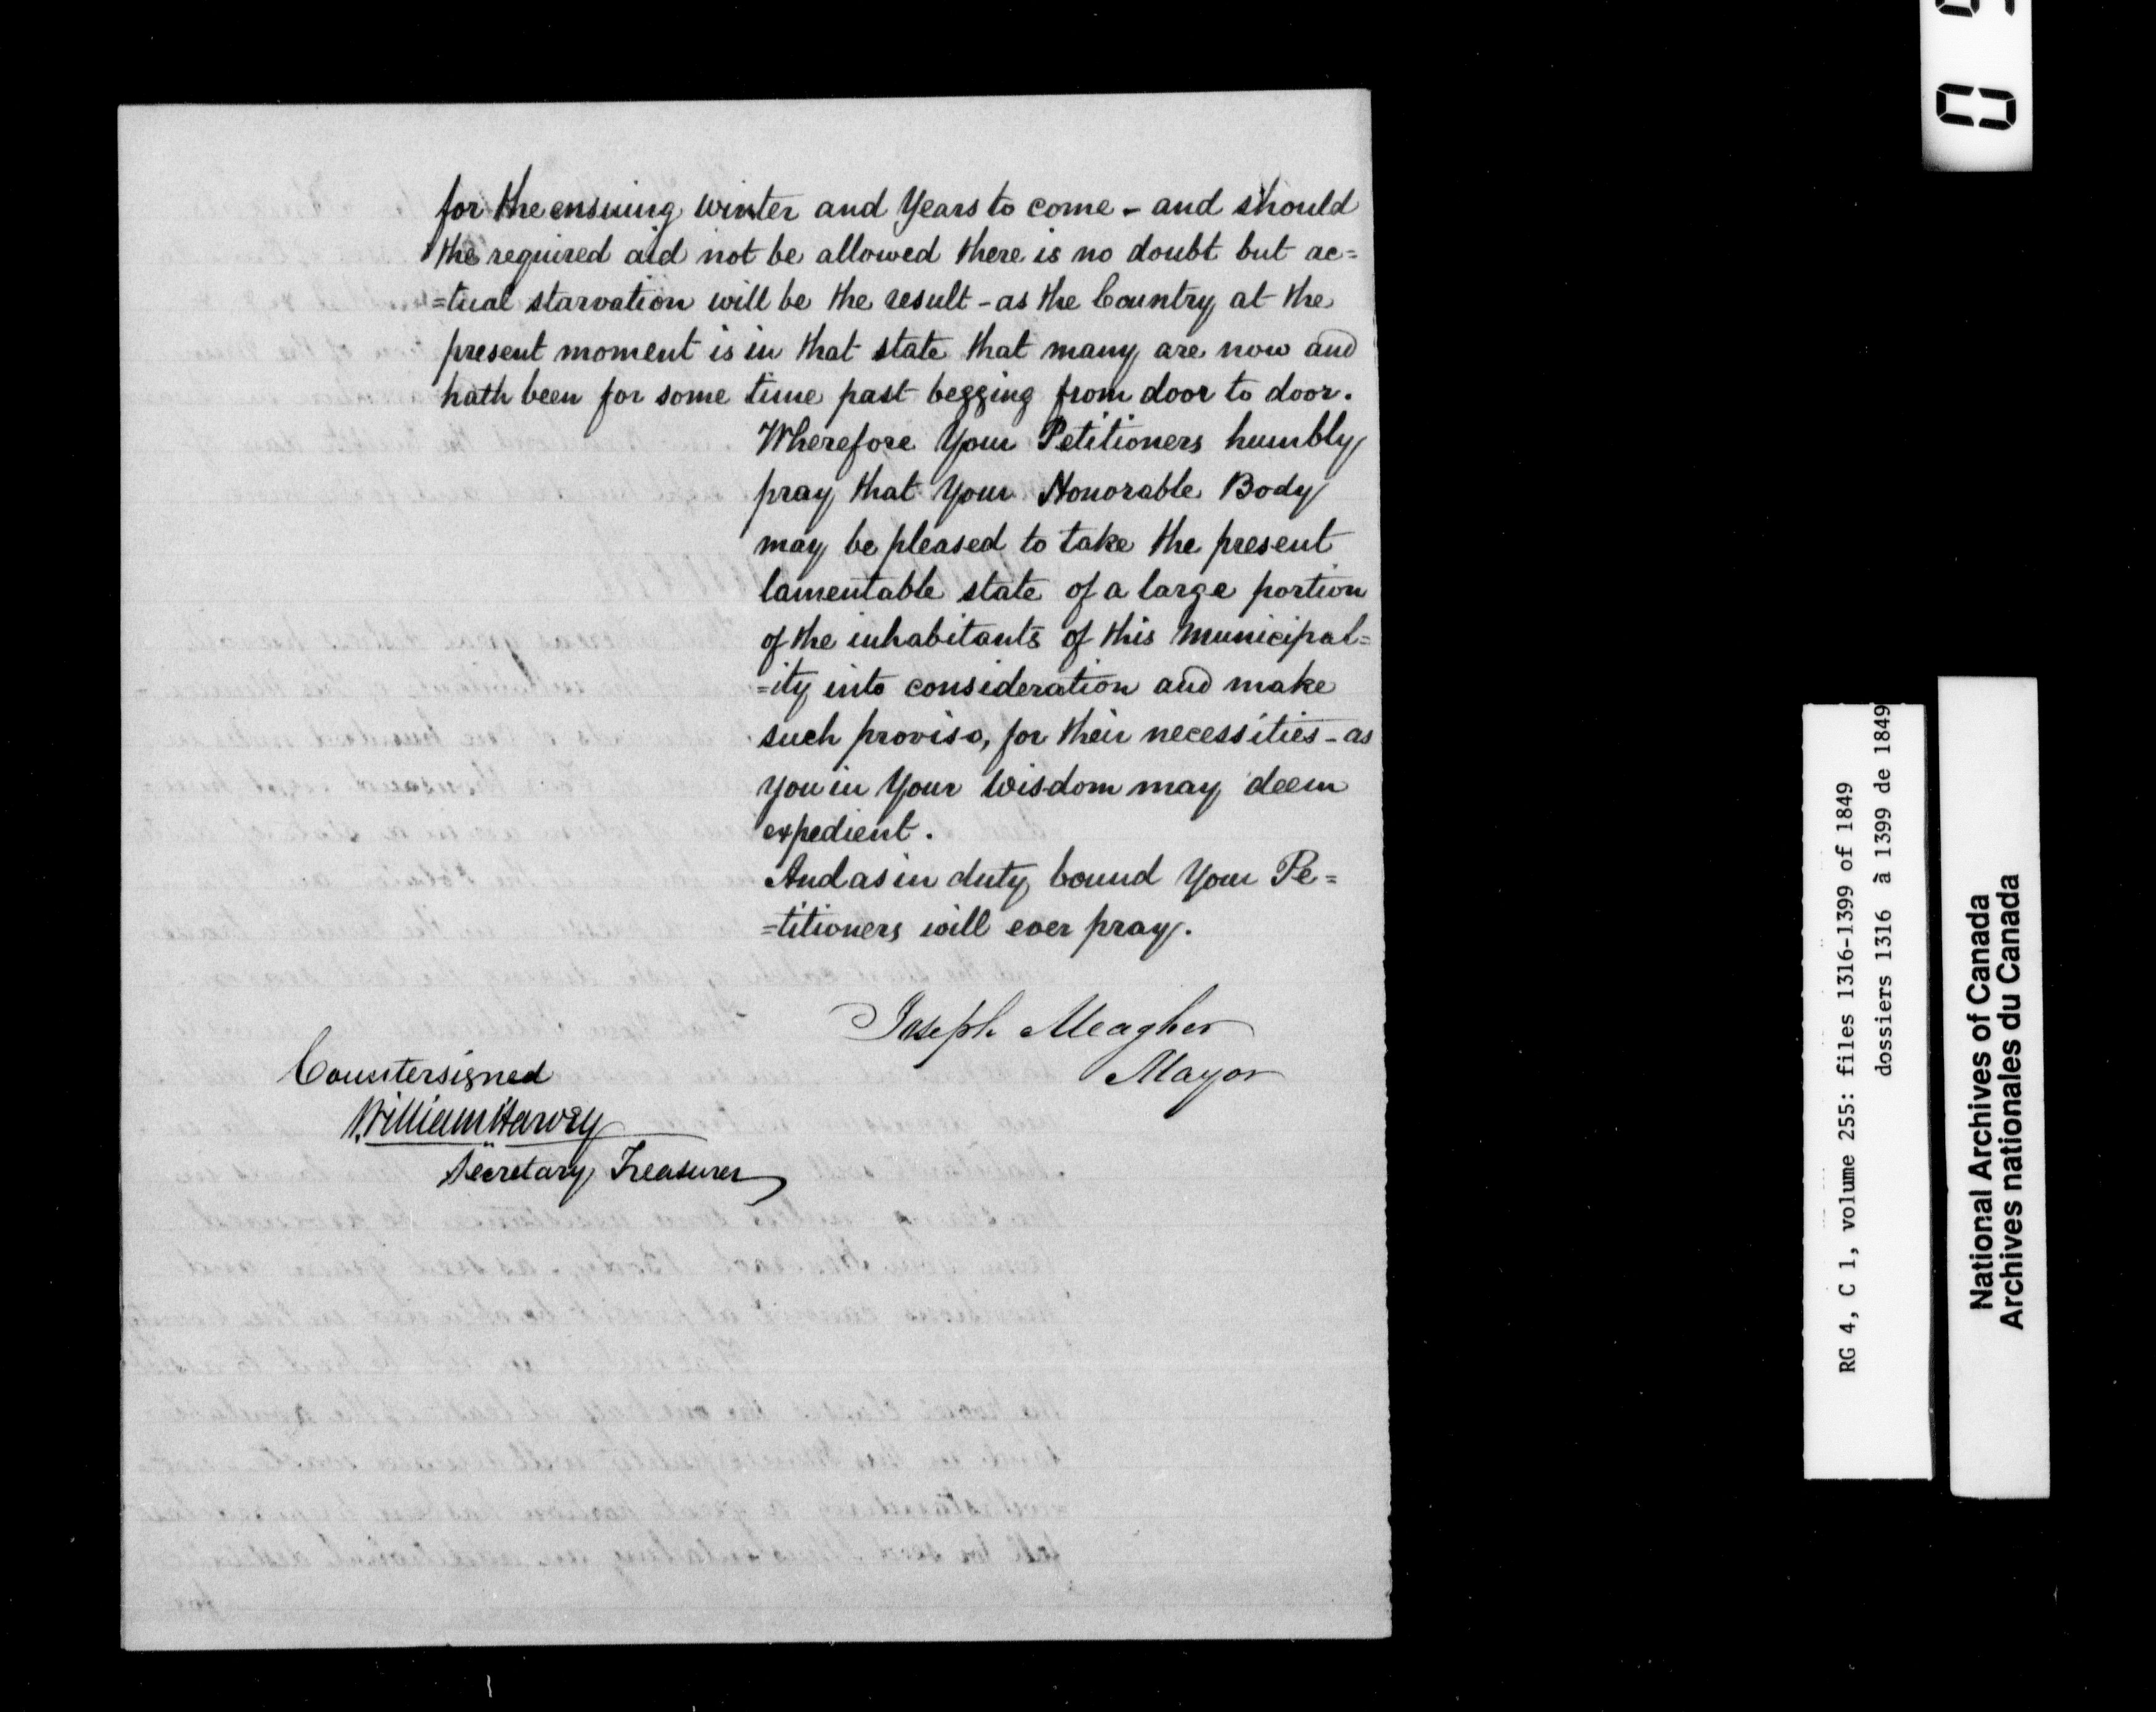 for the ensuing winter and Years to come - and should
the required aid not be allowed there is no doubt but ac=
=tual starvation will be the result - as the Country at the
present moment is in that state that many are now and
hath been for some time past begging from door to door.
Wherefore Your Petitioners humbly
pray that Your Honorable Body
may be pleased to take the present
lamentable state of a large portion
of the inhabitants of this Municipal=
=ity into consideration and make
such proviso, for their necessities - as
you in Your Wisdom may deem
expedient.
And as in duty bound Your Pe=
=titioners will ever pray.
Joseph Meagher
Mayor
Countersigned
William Harvey
Secretary Treasurer
RG 4, C 1, volume 255: files 1316-1399 of 1849
dossiers 1316 à 1399 de 1849
National Archives of Canada
Archives nationales du Canada